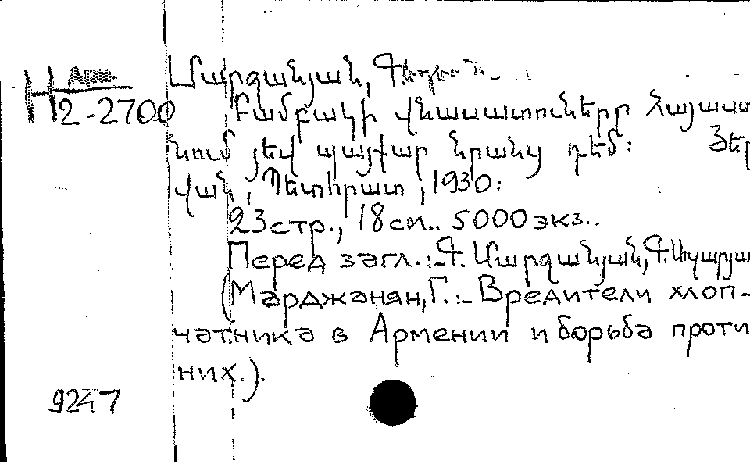 Арм.
Н2-2700
Մարջանյան, Գ
Բամբակի վնասատուները Հայաստ
նում յեվ պայքար նրանց դեմ։ Յեր
վան, Պետհրատ, 1930։
23стр., 18см.. 5000экз..
Перед загл.: Գ. Մարջանյան, Գ.
(Марджанян, Г.:- Вредители хлоп-
чатника в Армении и борьба проти
них.).
9247